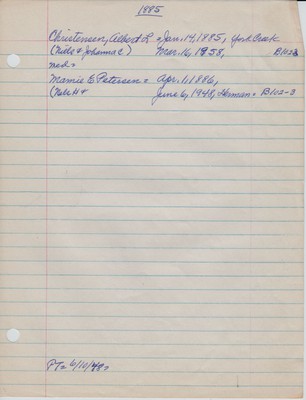 1885
Christensen, Albert L. = Jan. 14, 1885, York Creek
(Niels & Johanna C) Mar. 16, 1958, B102-3
med =
Mamie E. Petersen = Apr. 1, 1886,
(Nels H & June 6, 1948, Herman = B102-3
PT= 6/10/49=